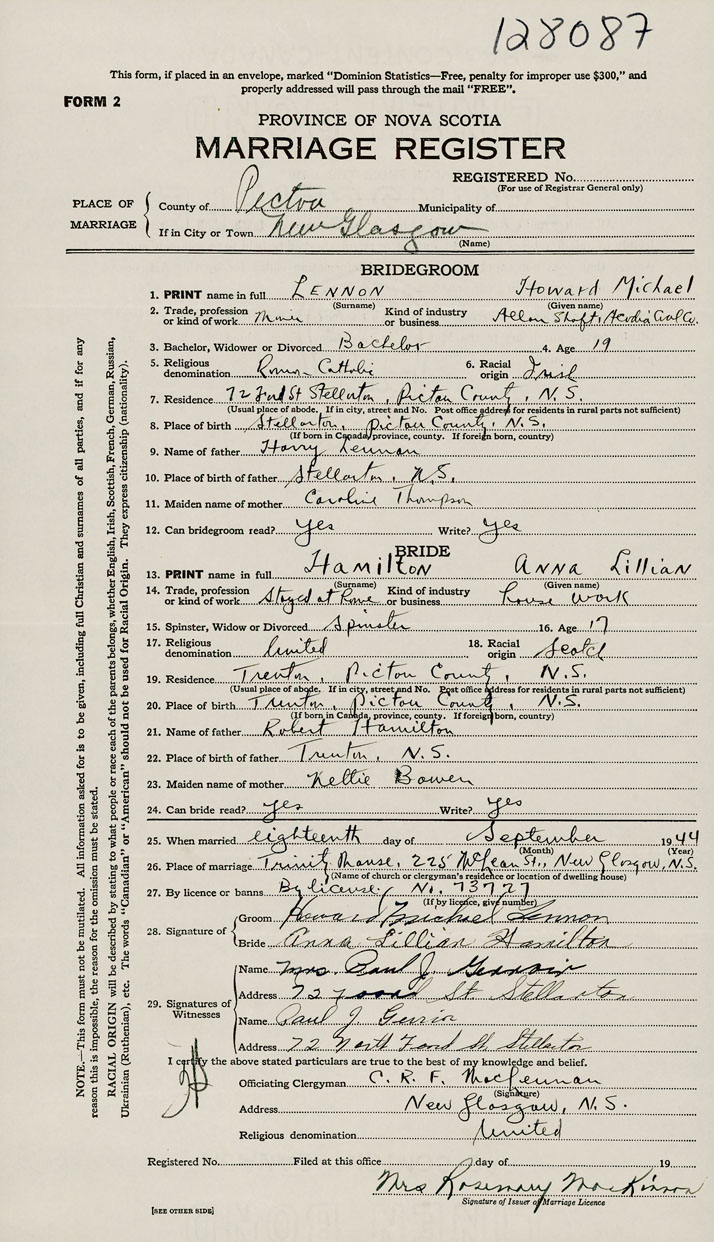 128087
This form, if placed in an envelope, marked "Dominion Statistics—Free, penalty for improper use $300," and
properly addressed will pass through the mail "FREE".
FORM 2
PROVINCE OF NOVA SCOTIA
MARRIAGE REGISTER
REGISTERED No.
(For use of Registrar General only)
PLACE OF MARRIAGE
County of Pictou Municipality of
If in City or Town New Glasgow
(Name)
BRIDEGROOM
1. PRINT name in full LENNON Howard Michael
(Surname) (Given name)
2. Trade, profession or kind of work Miner Kind of industry or business Allan Shaft, Acadia Coal Co.
3. Bachelor, Widower or Divorced Bachelor 4. Age 19
5. Religious denomination Roman Catholic 6. Racial origin Irish
7. Residence 72 Ford St Stellarton, Pictou County, N.S.
(Usual place of abode. If in city, street and No. Post office address for residents in rural parts not sufficient)
8. Place of birth Stellarton, Pictou County, N.S.
(If born in Canada, province, county. If foreign born, country)
9. Name of father Harry Lennon
10. Place of birth of father Stellarton, N.S.
11. Maiden name of mother Caroline Thompson
12. Can bridegroom read? yes Write? yes
BRIDE
13. PRINT name in full Hamilton Anna Lillian
(Surname) (Given name)
14. Trade, profession or kind of work Stayed at home Kind of industry or business house work
15. Spinster, Widow or Divorced Spinster 16. Age 17
17. Religious denomination United 18. Racial origin Scotch
19. Residence Trenton, Pictou County, N.S.
(Usual place of abode. If in city, street and No. Post office address for residents in rural parts not sufficient)
20. Place of birth Trenton, Pictou County, N.S.
(If born in Canada, province, county. If foreign born, country)
21. Name of father Robert Hamilton
22. Place of birth of father Trenton, N.S.
23. Maiden name of mother Nellie Bowen
24. Can bride read? yes Write? yes
25. When married eighteenth day of September 1944
(Month) (Year)
26. Place of marriage Trinity Manse, 225 McLean St., New Glasgow, N.S.
(Name of church or clergyman's residence or location of dwelling house)
27. By licence or banns By license, No. 73727
(If by licence, give number)
28. Signature of
Groom Howard Michael Lennon
Bride Anna Lillian Hamilton
29. Signatures of Witnesses
Name Mrs. Paul J.
Address 72 St Stellarton
Name Paul J
Address 72 North Ford St Stellarton
I certify the above stated particulars are true to the best of my knowledge and belief.
Officiating Clergyman C. R. F. MacLennan
(Signature)
Address New Glasgow, N.S.
Religious denomination United
Registered No. Filed at this office day of 19
Mrs Rosemary MacKinnon
Signature of Issuer of Marriage Licence
[SEE OTHER SIDE]
NOTE.—This form must not be mutilated. All information asked for is to be given, including full Christian and surnames of all parties, and if for any
reason this is impossible, the reason for the omission must be stated.
RACIAL ORIGIN will be described by stating to what people or race each of the parents belongs, whether English, Irish, Scottish, French, German, Russian,
Ukrainian (Ruthenian), etc. The words "Canadian" or "American" should not be used for Racial Origin. They express citizenship (nationality).